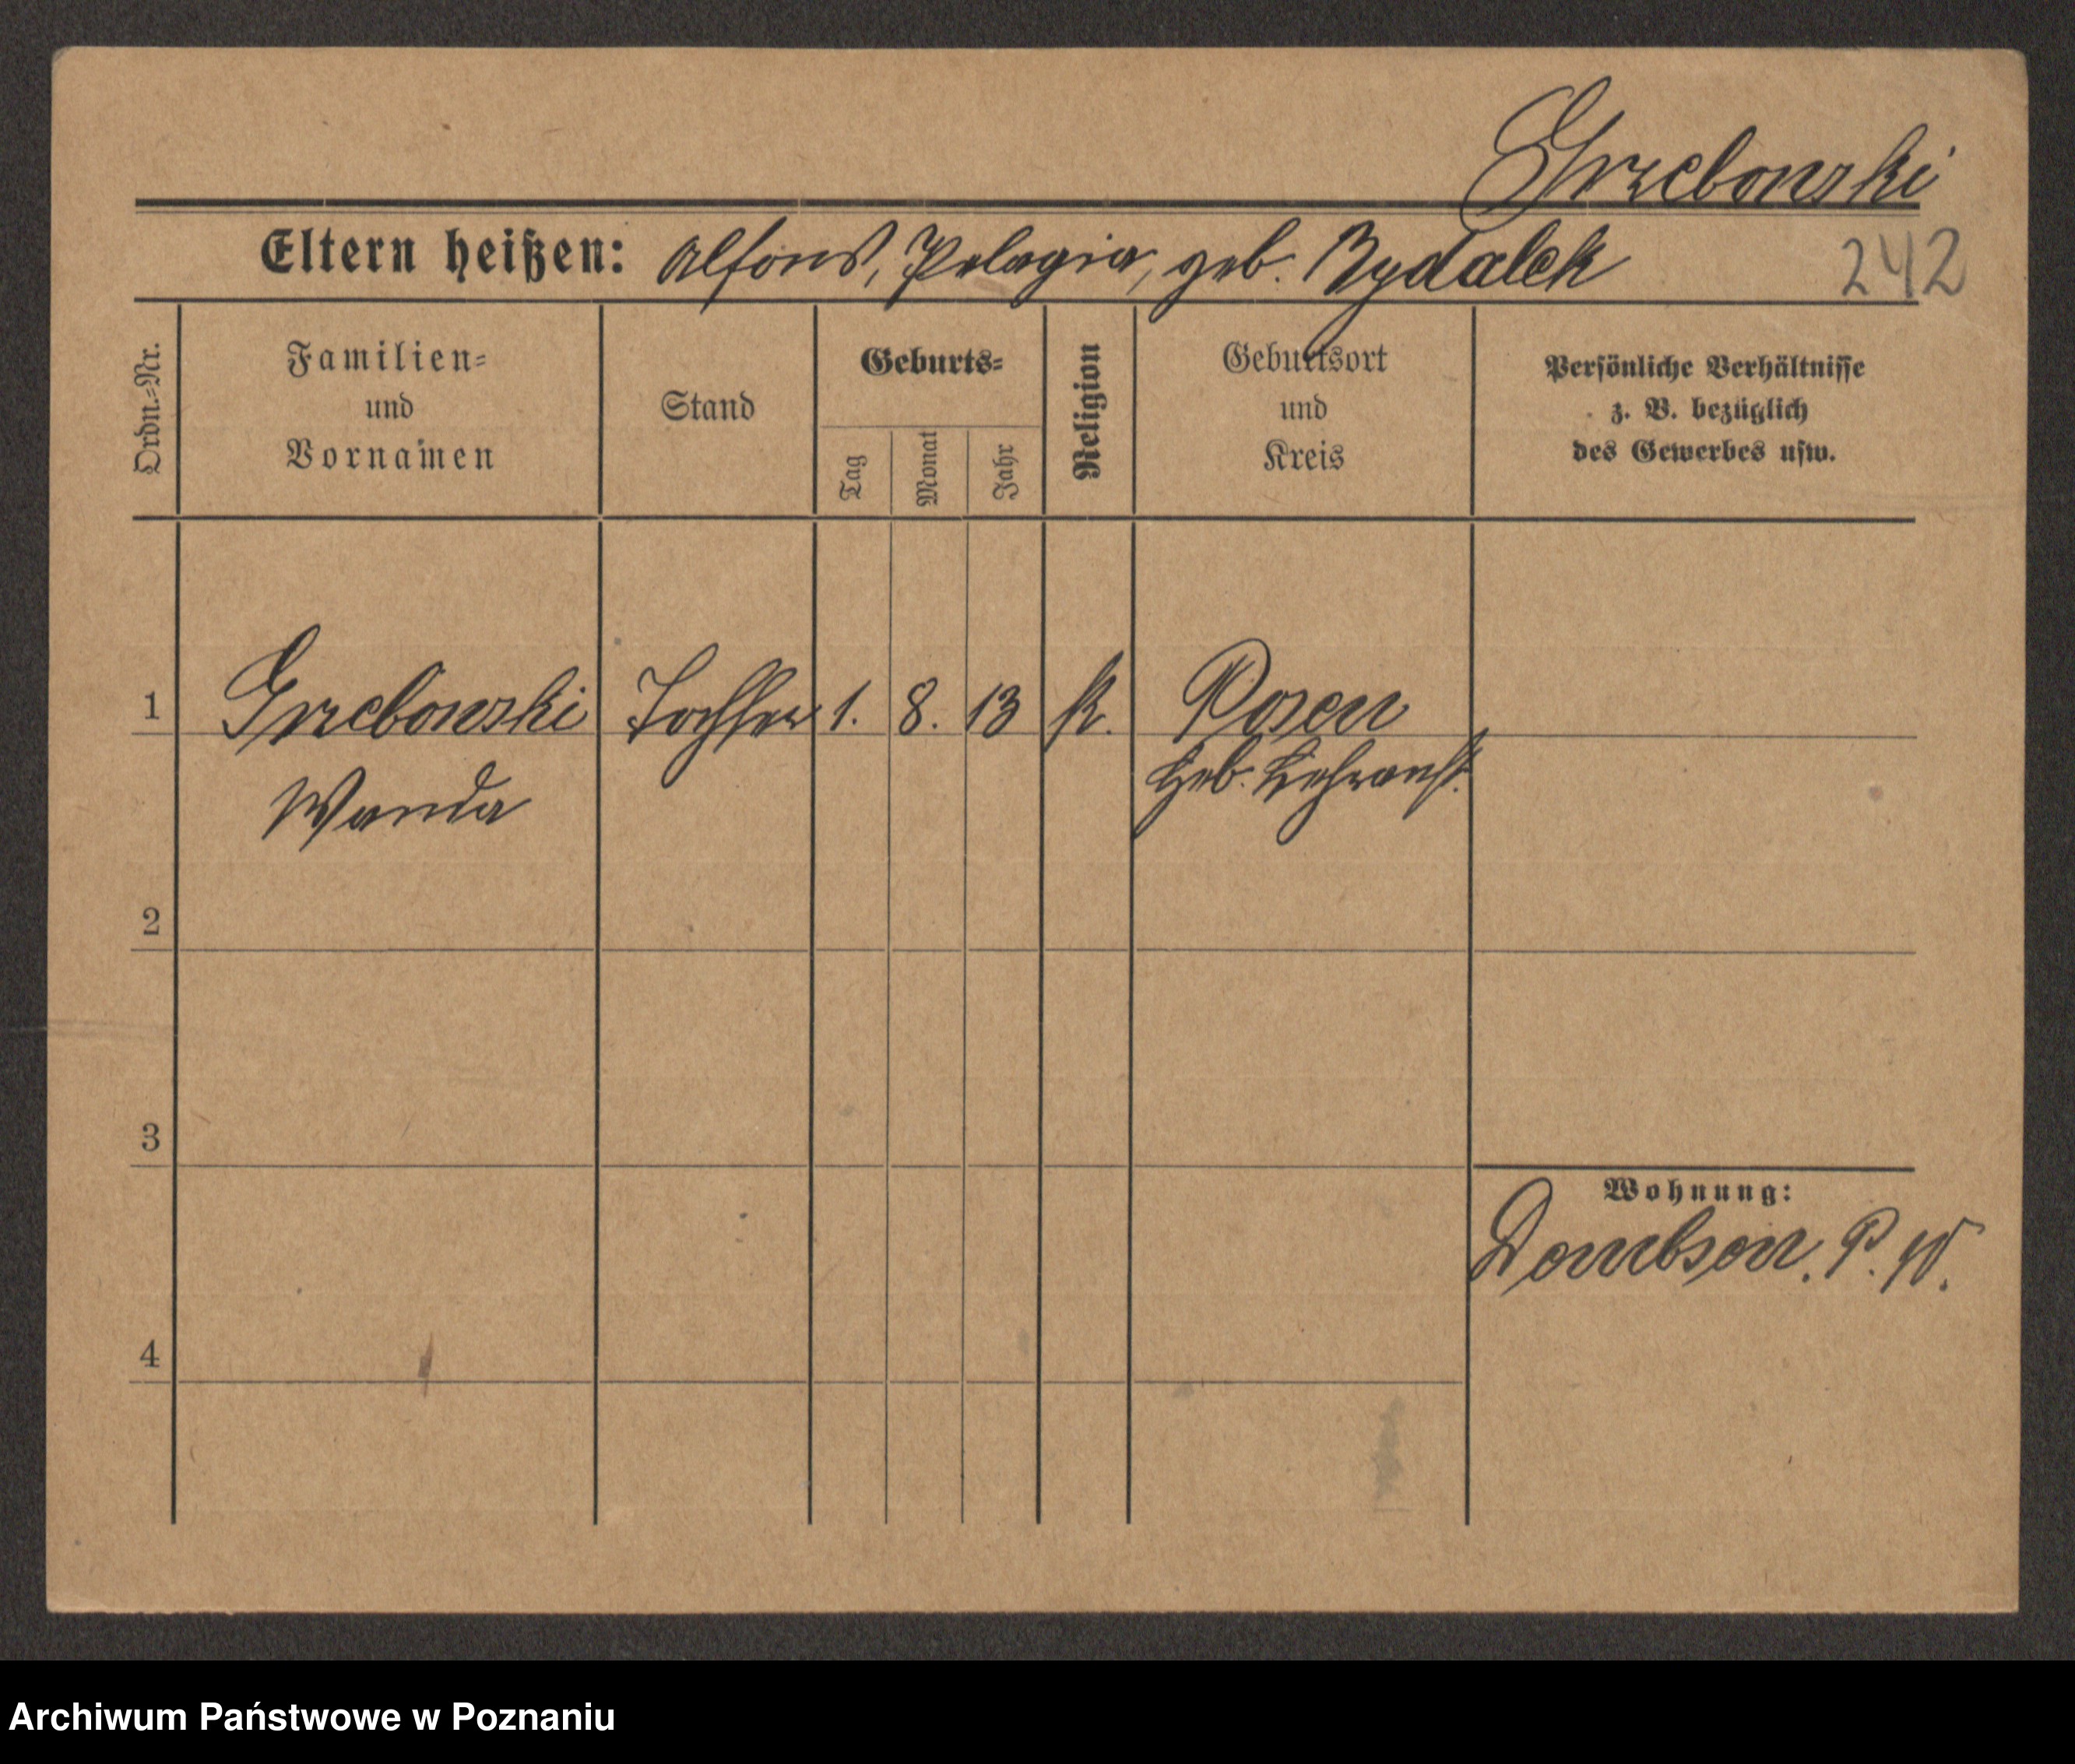 Grzebonski
Eltern heißen: Alfons, Pelagia, geb. Bydalek 242
Ordn.-Nr.
Familien-
und
Vornamen
Stand
Geburts-
Tag
Monat
Jahr
Religion
Geburtsort
und
Kreis
Persönliche Verhältnisse
z. B. bezüglich
des Gewerbes usw.
1 Grzebonski Tochter 1. 8. 13 k. Posen
Wanda Heb. Lehranst.
2
3
Wohnung:
Dombsen. P. W.
4
Archiwum Państwowe w Poznaniu